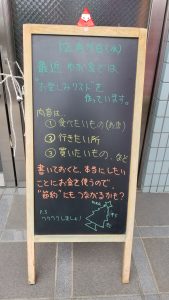 12月4日(水)
最近 わが家では
"お楽しみリスト"を
作っています。
内容は…
① 食べたいもの(お店)
② 行きたい所
③ 買いたいもの.など
書いておくと、本当にしたい
ことにお金を使うので、
"節約"にもつながるかも？